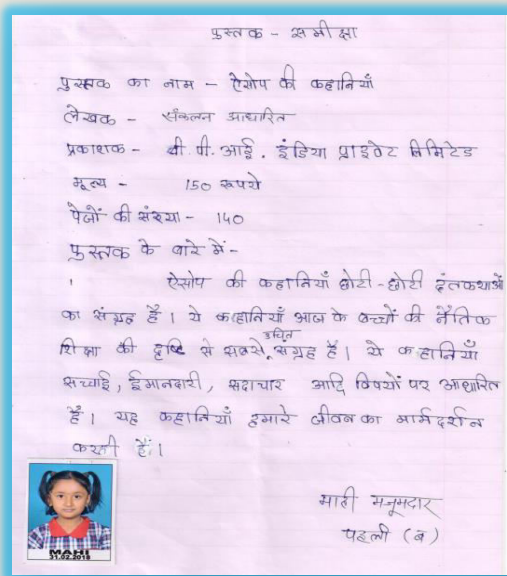 पुस्तक - समीक्षा
पुस्तक का नाम - ऐसोप की कहानियाँ
लेखक - संकलन आधारित
प्रकाशक - बी.पी.आई. इंडिया प्राइवेट लिमिटेड
मूल्य - 150 रूपये
पेजों की संख्या - 140
पुस्तक के बारे में -
ऐसोप की कहानियाँ छोटी-छोटी दंतकथाओं
का संग्रह है। ये कहानियाँ आज के बच्चों की नैतिक
शिक्षा की दृष्टि से सबसे उचित संग्रह है। ये कहानियाँ
सच्चाई, ईमानदारी, सदाचार आदि विषयों पर आधारित
हैं। यह कहानियाँ हमारे जीवन का मार्गदर्शन
करती हैं।
माही मजूमदार
पहली (ब)
MAHI
31.02.2018